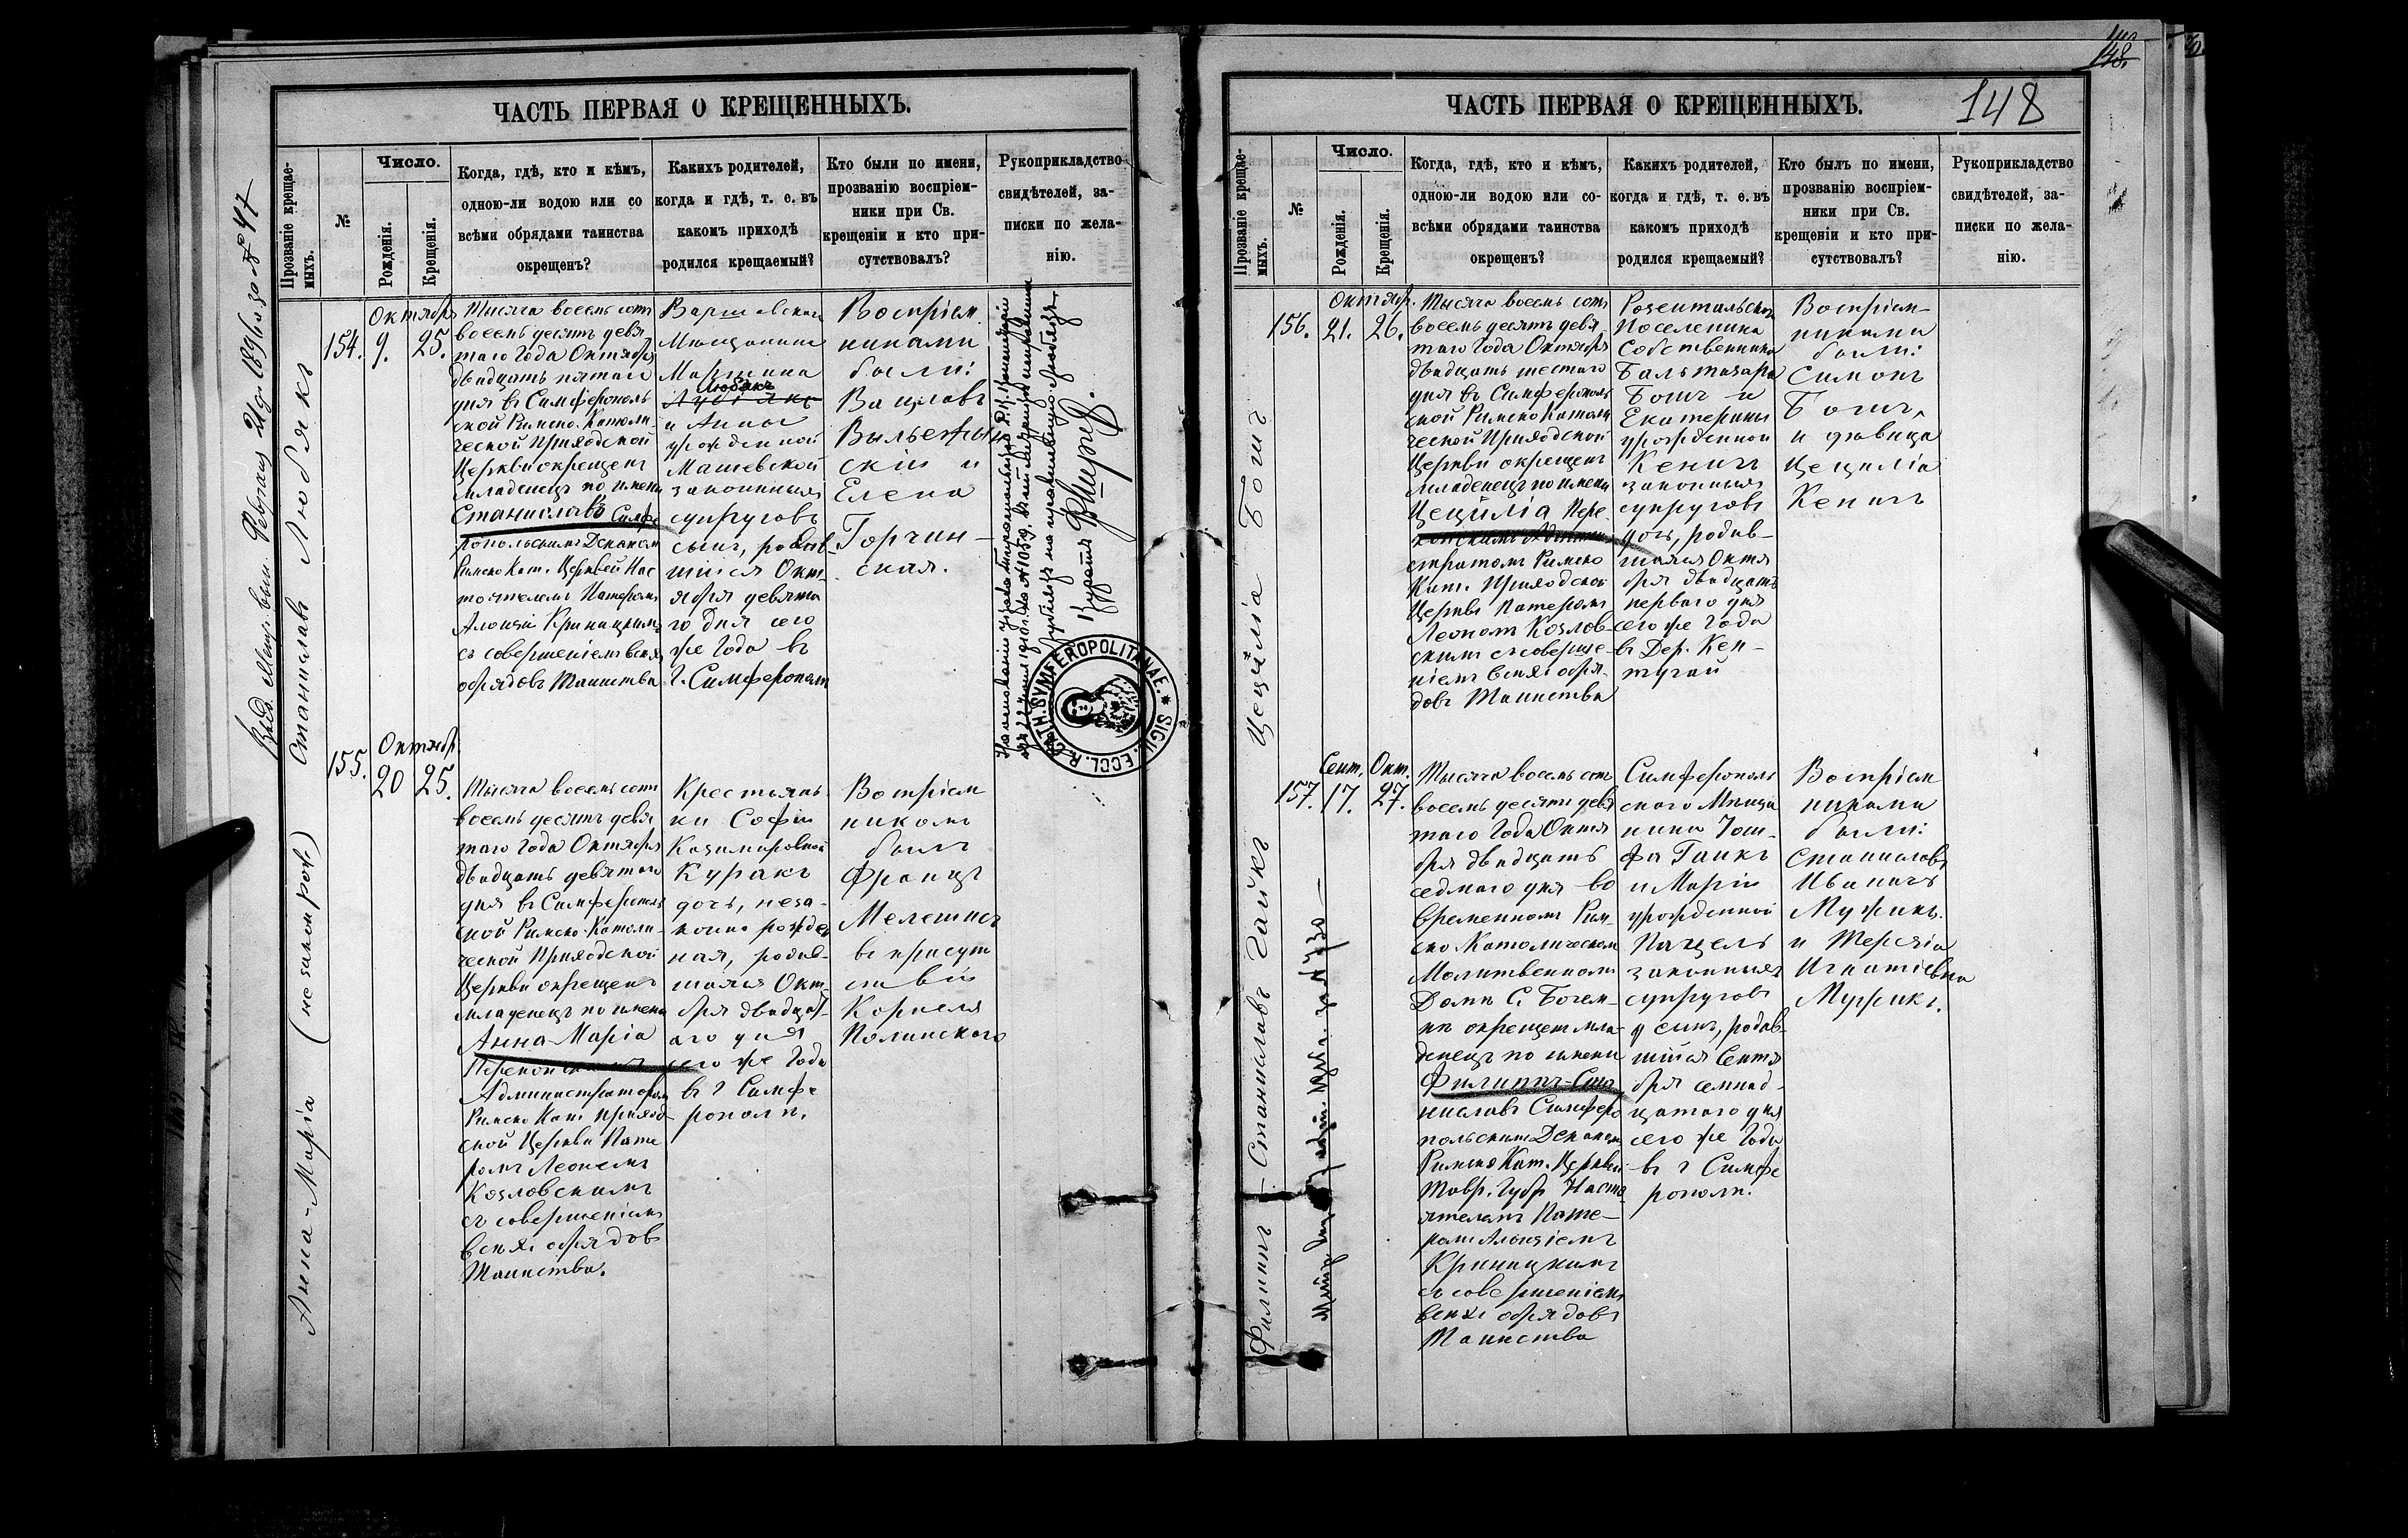 ЧАСТЬ ПЕРВАЯ О КРЕЩЕННЫХЪ.
Прозваніе крещае-
мыхъ.
№
Число.
Рожденія.
Крещенія.
Когда, гдѣ, кто и кѣмъ,
одною-ли водою или со
всѣми обрядами таинства
окрещенъ?
Какихъ родителей,
когда и гдѣ, т. е. въ
какомъ приходѣ
родился крещаемый?
Кто были по имени,
прозванію воспріем-
ники при Св.
крещеніи и кто при-
сутствовалъ?
Рукоприкладство
свидѣтелей, за-
писки по жела-
нію.
Станиславъ Любякъ
154.
Октября
9.
25.
Тысяча восемь сотъ
восемь десятъ девя
таго Года Октября
двадцать пятаго
дня въ Симферополь
ской Римско-Католи
ческой Приходской
Церкви окрещенъ
младенецъ по имени
Станиславъ Симфе
ропольскимъ Деканом
Римско Кат. Церквей Нас
тоятелемъ Патеромъ
Алоизій Криницкимъ
съ совершеніемъ всѣхъ
обрядовъ Таинства
Варшавскаго
Мещанина
Мартина
Любякъ
и Анны
урожденной
Машевской
законныхъ
супруговъ
сынъ, родив
шійся Окт-
ября девята
го дня сего
же Года въ
г. Симферополѣ
Воспріем
никами
были:
Вацлавъ
Вильежин
скій и
Елена
Горчин-
ская.
CATH. SYMFEROPOLITANAE. * SIGIL. ECCL. R.
Анна-Марія (незаконорож)
155.
Октябр.
20
25.
Тысяча восемь сотъ
восемь десятъ девя
таго Года Октября
двадцать девятаго
дня въ Симферополь
ской Римско-Католи-
ческой Приходской
Церкви окрещенъ
младенецъ по имени
Анна-Марія
Перекопскимъ
Администраторомъ
Римско Кат. Приход
ской Церкви Пате
ромъ Леономъ
Козловскимъ
съ совершеніемъ
всѣхъ обрядовъ
Таинства.
Крестьян-
ки Софіи
Казимировной
Куракъ
дочь, неза-
конно рожден
ная, родив-
шаяся Октя-
бря двадцат-
аго дня
сего же Года
въ г Симфе
рополѣ.
Воспріем
никомъ
былъ
Францъ
Мелешко
въ присут
ствіи
Корнеля
Полинскаго
ЧАСТЬ ПЕРВАЯ О КРЕЩЕННЫХЪ.
148
148.
Прозваніе крещае-
мыхъ.
№
Число.
Рожденія.
Крещенія.
Когда, гдѣ, кто и кѣмъ,
одною-ли водою или со-
всѣми обрядами таинства
окрещенъ?
Какихъ родителей,
когда и гдѣ, т. е. въ
какомъ приходѣ
родился крещаемый?
Кто былъ по имени,
прозванію воспріем-
ники при Св.
крещеніи и кто при-
сутствовалъ?
Рукоприкладство
свидѣтелей, за-
писки по жела-
нію.
Цецилія Бошъ
156.
Октябр.
21.
26.
Тысяча восемь сотъ
восемь десятъ девя
таго Года Октября
двадцать шестаго
дня въ Симферополь
ской Римско Католи
ческой Приходской
Церкви окрещенъ
младенецъ по имени
Цецилія Пере-
копскимъ Админи-
страторомъ Римско
Кат. Приходской
Церкви Патеромъ
Леономъ Козлов-
скимъ съ соверше-
ніемъ всѣхъ обря-
довъ Таинства
Розентальскаго
Поселенина
Собственника
Бальтазара
Бошъ и
Екатерины
урожденной
Кенигъ
законныхъ
супруговъ
дочь, родив-
шаяся Октя
бря двадцать
перваго дня
сего же Года
въ Дер. Кен-
тугай
Воспріем-
никами
были:
Симонъ
Бошъ,
и дѣвица
Цецилія
Кенигъ
Филиппъ-Станиславъ Гайкъ
157.
Сент.
17.
Окт.
27.
Тысяча восемь сотъ
восемь десятъ девя
таго Года Октя
бря двадцать
седмаго дня во
временномъ Рим-
ско Католическомъ
Молитвенномъ
Домѣ С. Богем-
кѣ окрещенъ мла-
денецъ по имени
Филиппъ-Ста
ниславъ Симферо
польскимъ Деканом
Римско Кат. Церквей
Тавр. Губр Насто
ятелемъ Пате-
ромъ Алоизіемъ
Криницкимъ
съ совершеніемъ
всѣхъ обрядовъ
Таинства
Симферополь
скаго Мѣща
нина Іоси-
фа Гаикъ
и Маріи
урожденной
Пацель
законныхъ
супруговъ
сынъ, родив-
шійся Сентя
бря семнад-
цатаго дня
сего же Года
въ г Симфе
рополѣ.
Воспріем
никами
были:
Станиславъ
Иваничъ
Мужикъ.
и Терезія
Игнатіевна
Мужикъ.